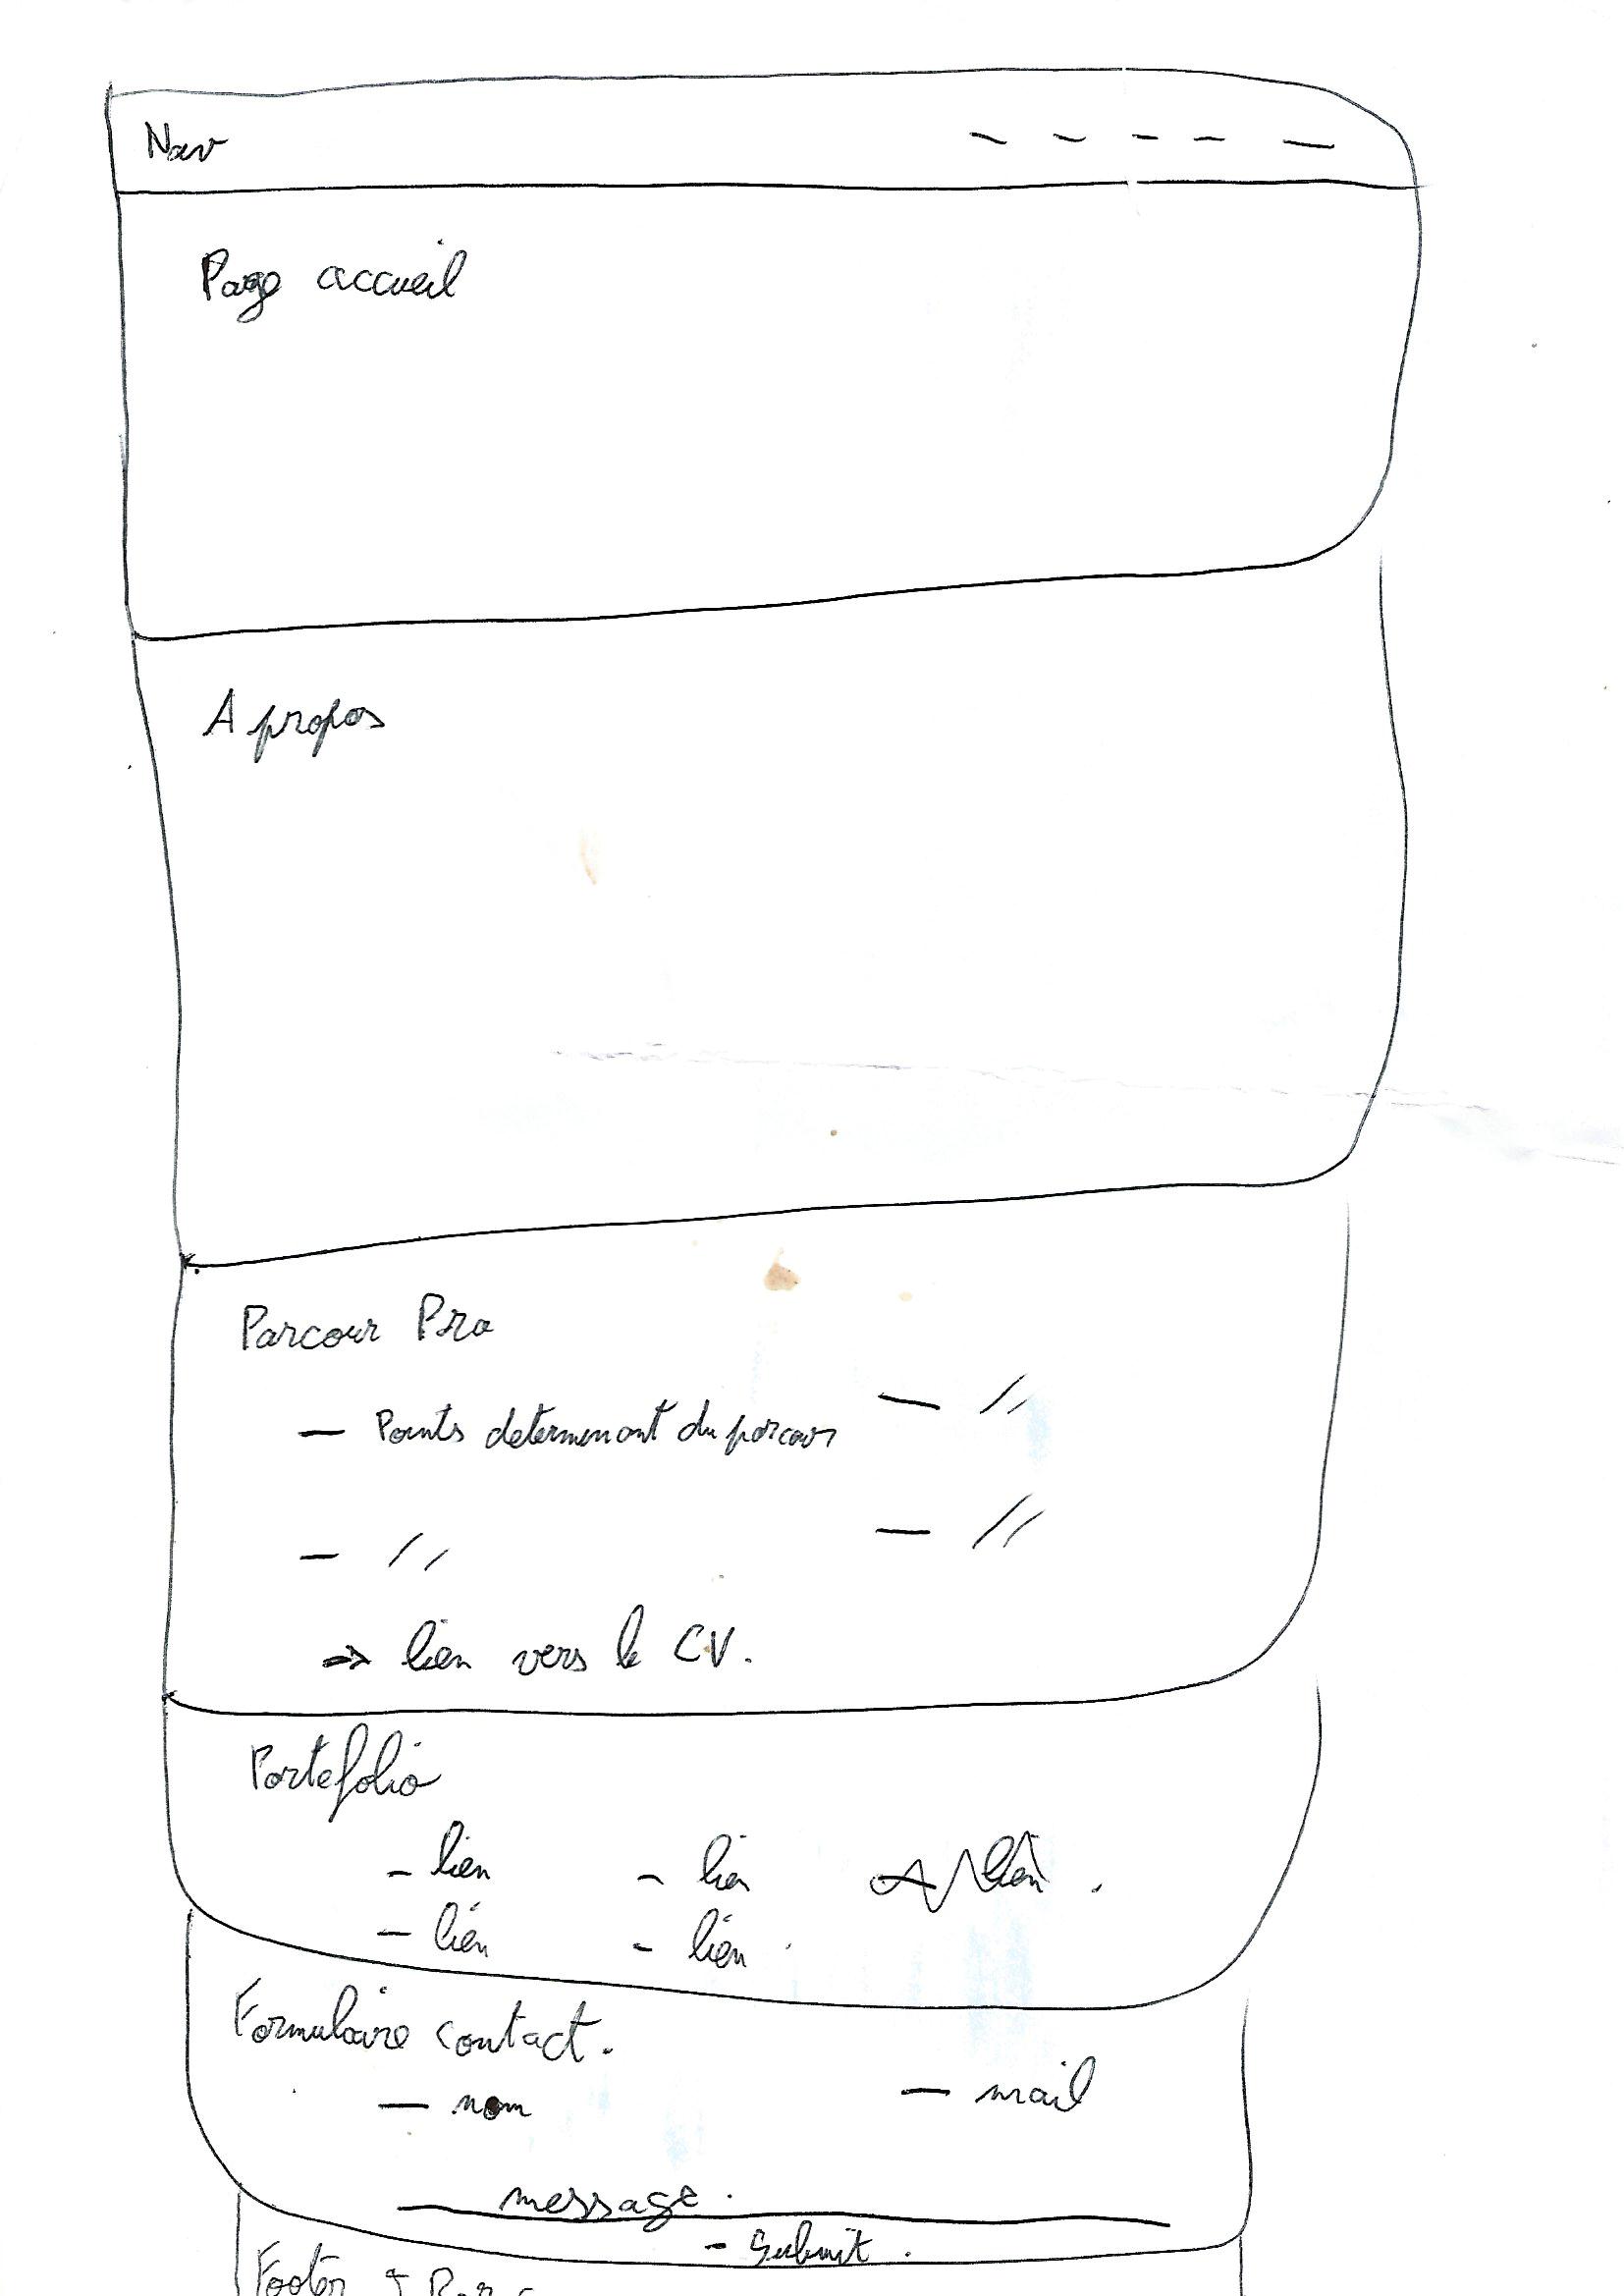 Nav
Page accueil
A propos
Parcour Pro
— Points determinant du parcour — //
— // — //
⇒ lien vers le CV.
Portefolio
- lien - lien lien.
- lien - lien.
Formulaire contact.
— nom — mail
message.
- Submit.
Footer